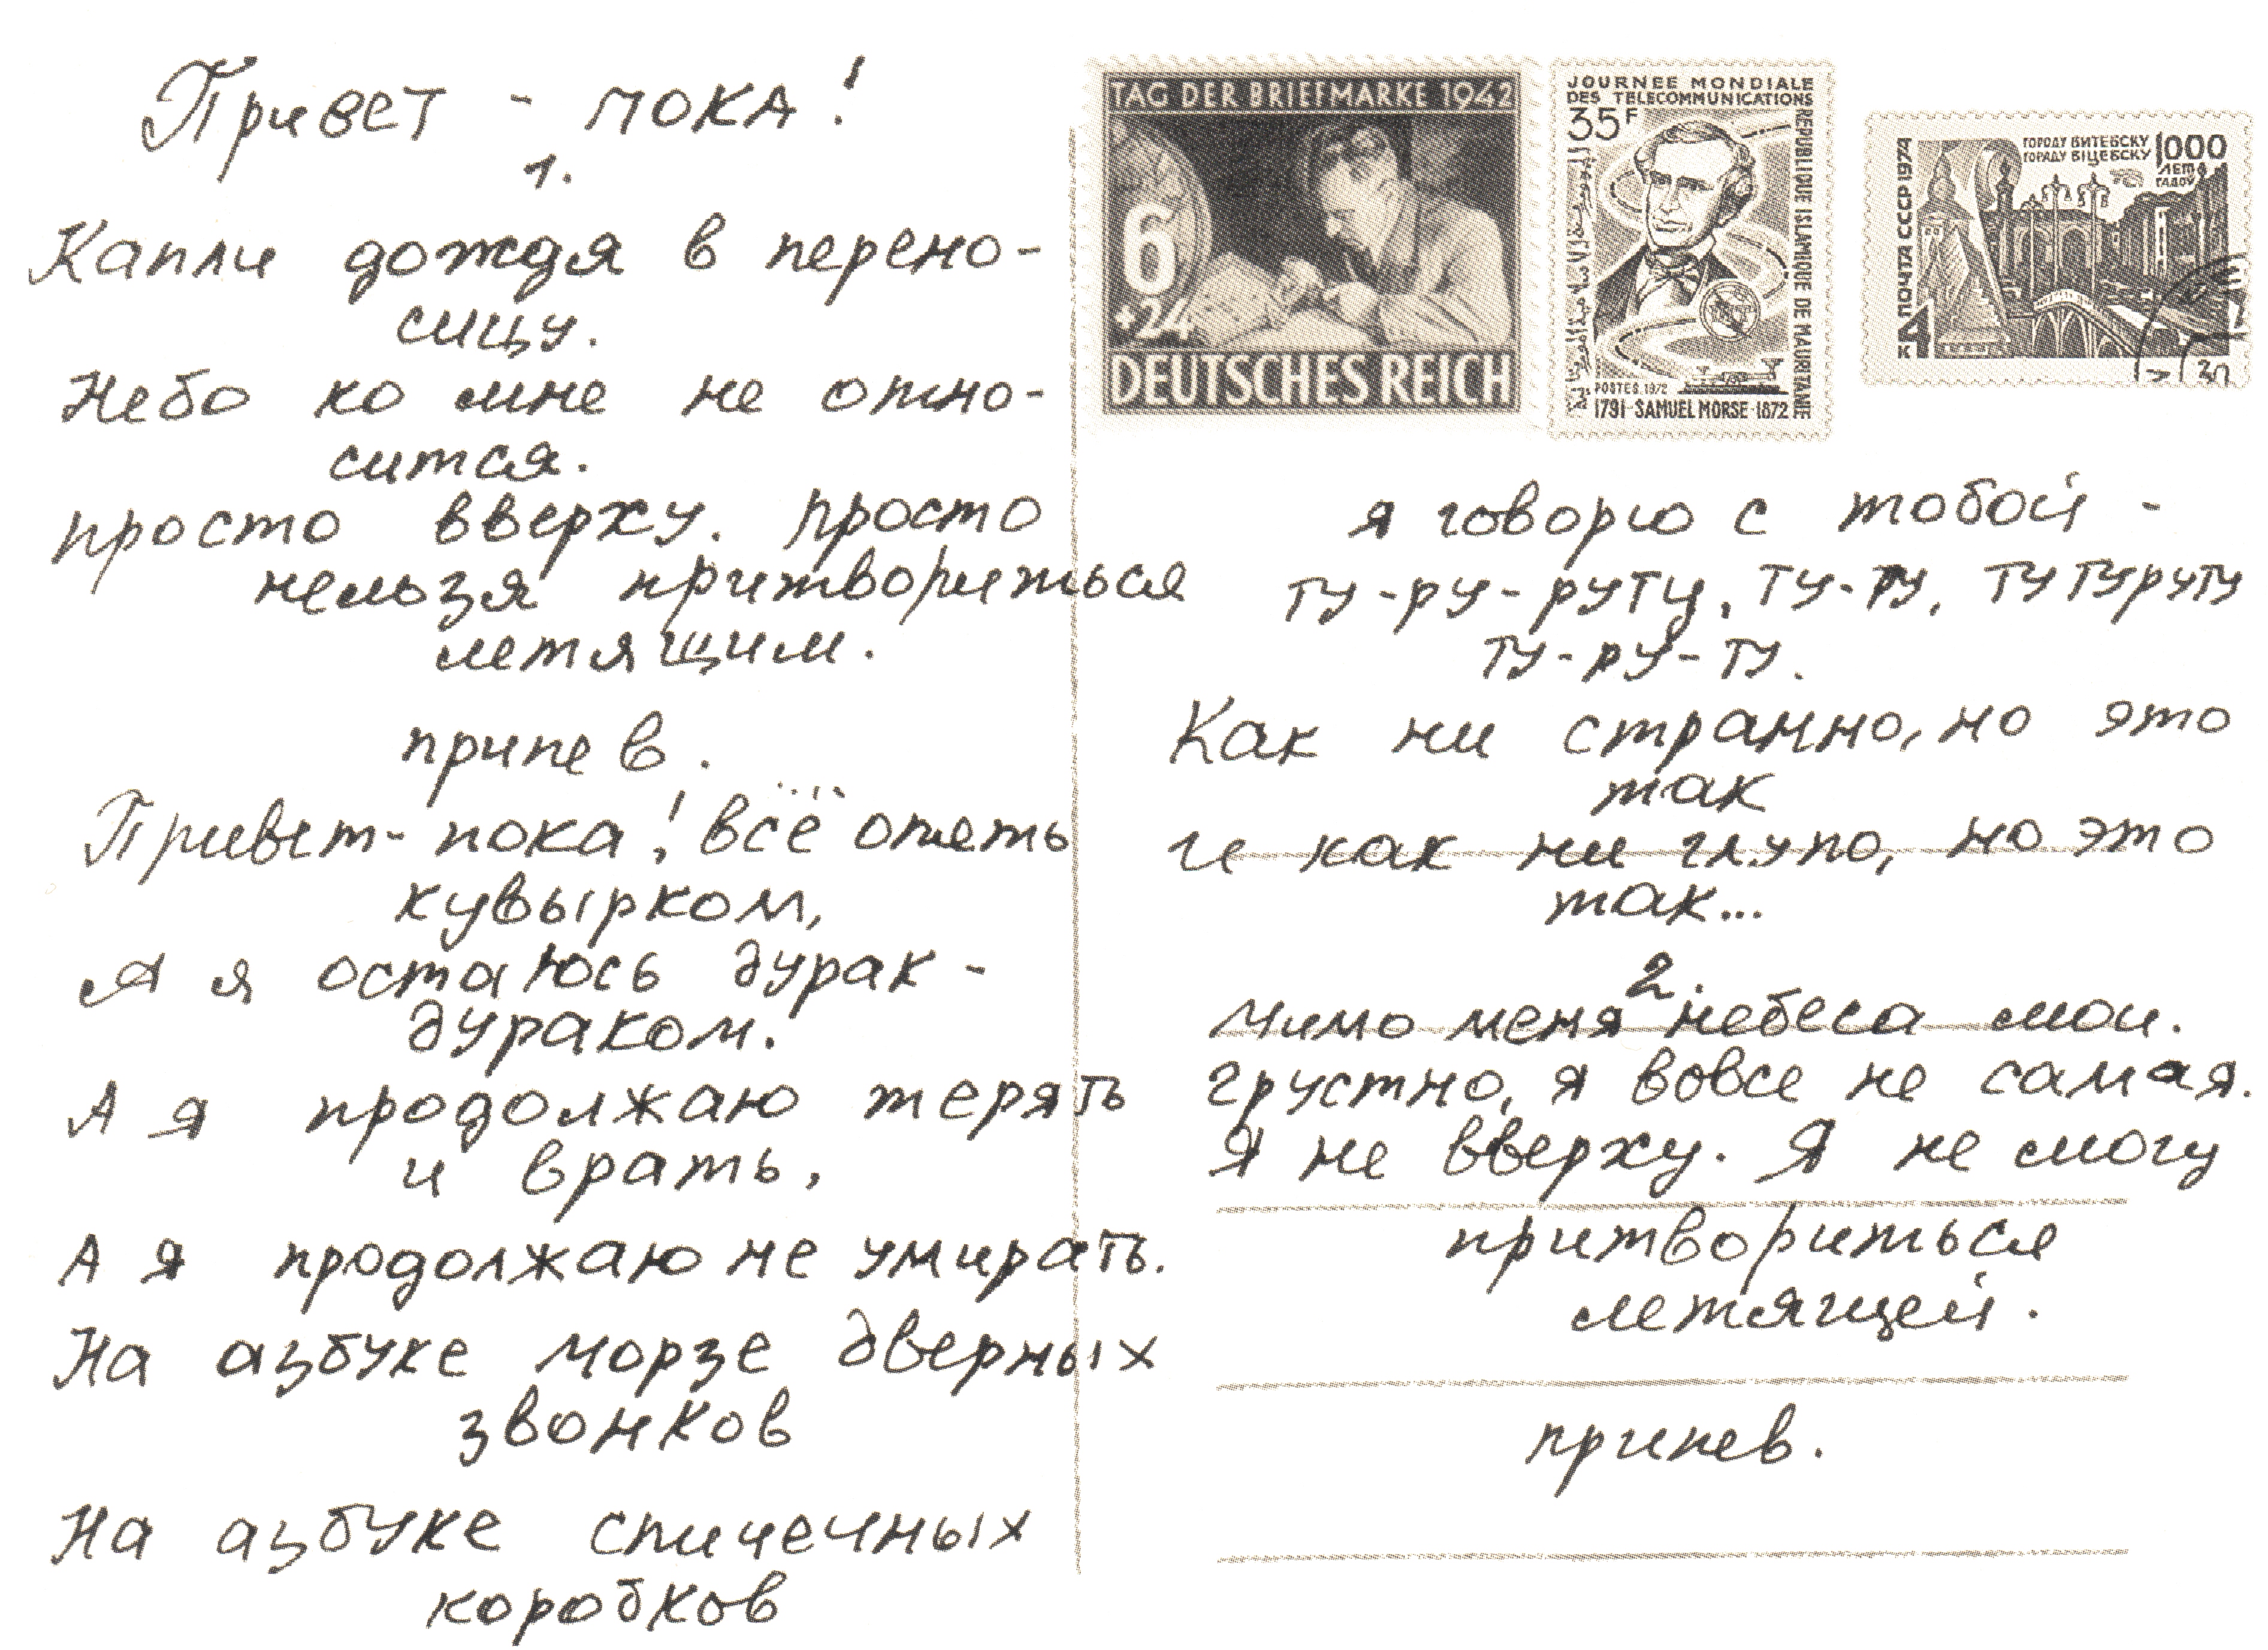 Привет - пока!
1.
Капли дождя в перено-
сицу.
Небо ко мне не отно-
сится.
просто вверху. просто
нельзя притвориться
летящим.
припев.
Привет- пока! всё опять
кувырком,
А я остаюсь дурак-
дураком.
А я продолжаю терять
и врать,
А я продолжаю не умирать.
На азбуке морзе дверных
звонков
На азбуке спичечных
коробков
TAG DER BRIEFMARKE 1942
6
+24
DEUTSCHES REICH
JOURNEE MONDIALE
DES TELECOMMUNICATIONS
35F
REPUBLIQUE ISLAMIQUE DE MAURITANIE
POSTES.1972
1791-SAMUEL MORSE-1872
ПОЧТА СССР 1974
ГОРОДУ ВИТЕБСКУ 1000
ГОРАДУ ВІЦЕБСКУ
ЛЕТ
ГАДОЎ
4К
я говорю с тобой -
ту-ру-руту, ту-ту, тутуруту
ту-ру-ту.
Как ни странно, но это
так
и как ни глупо, но это
так...
2.
мимо меня небеса мои.
грустно, я вовсе не самая.
Я не вверху. Я не могу
притвориться
летящей.
припев.